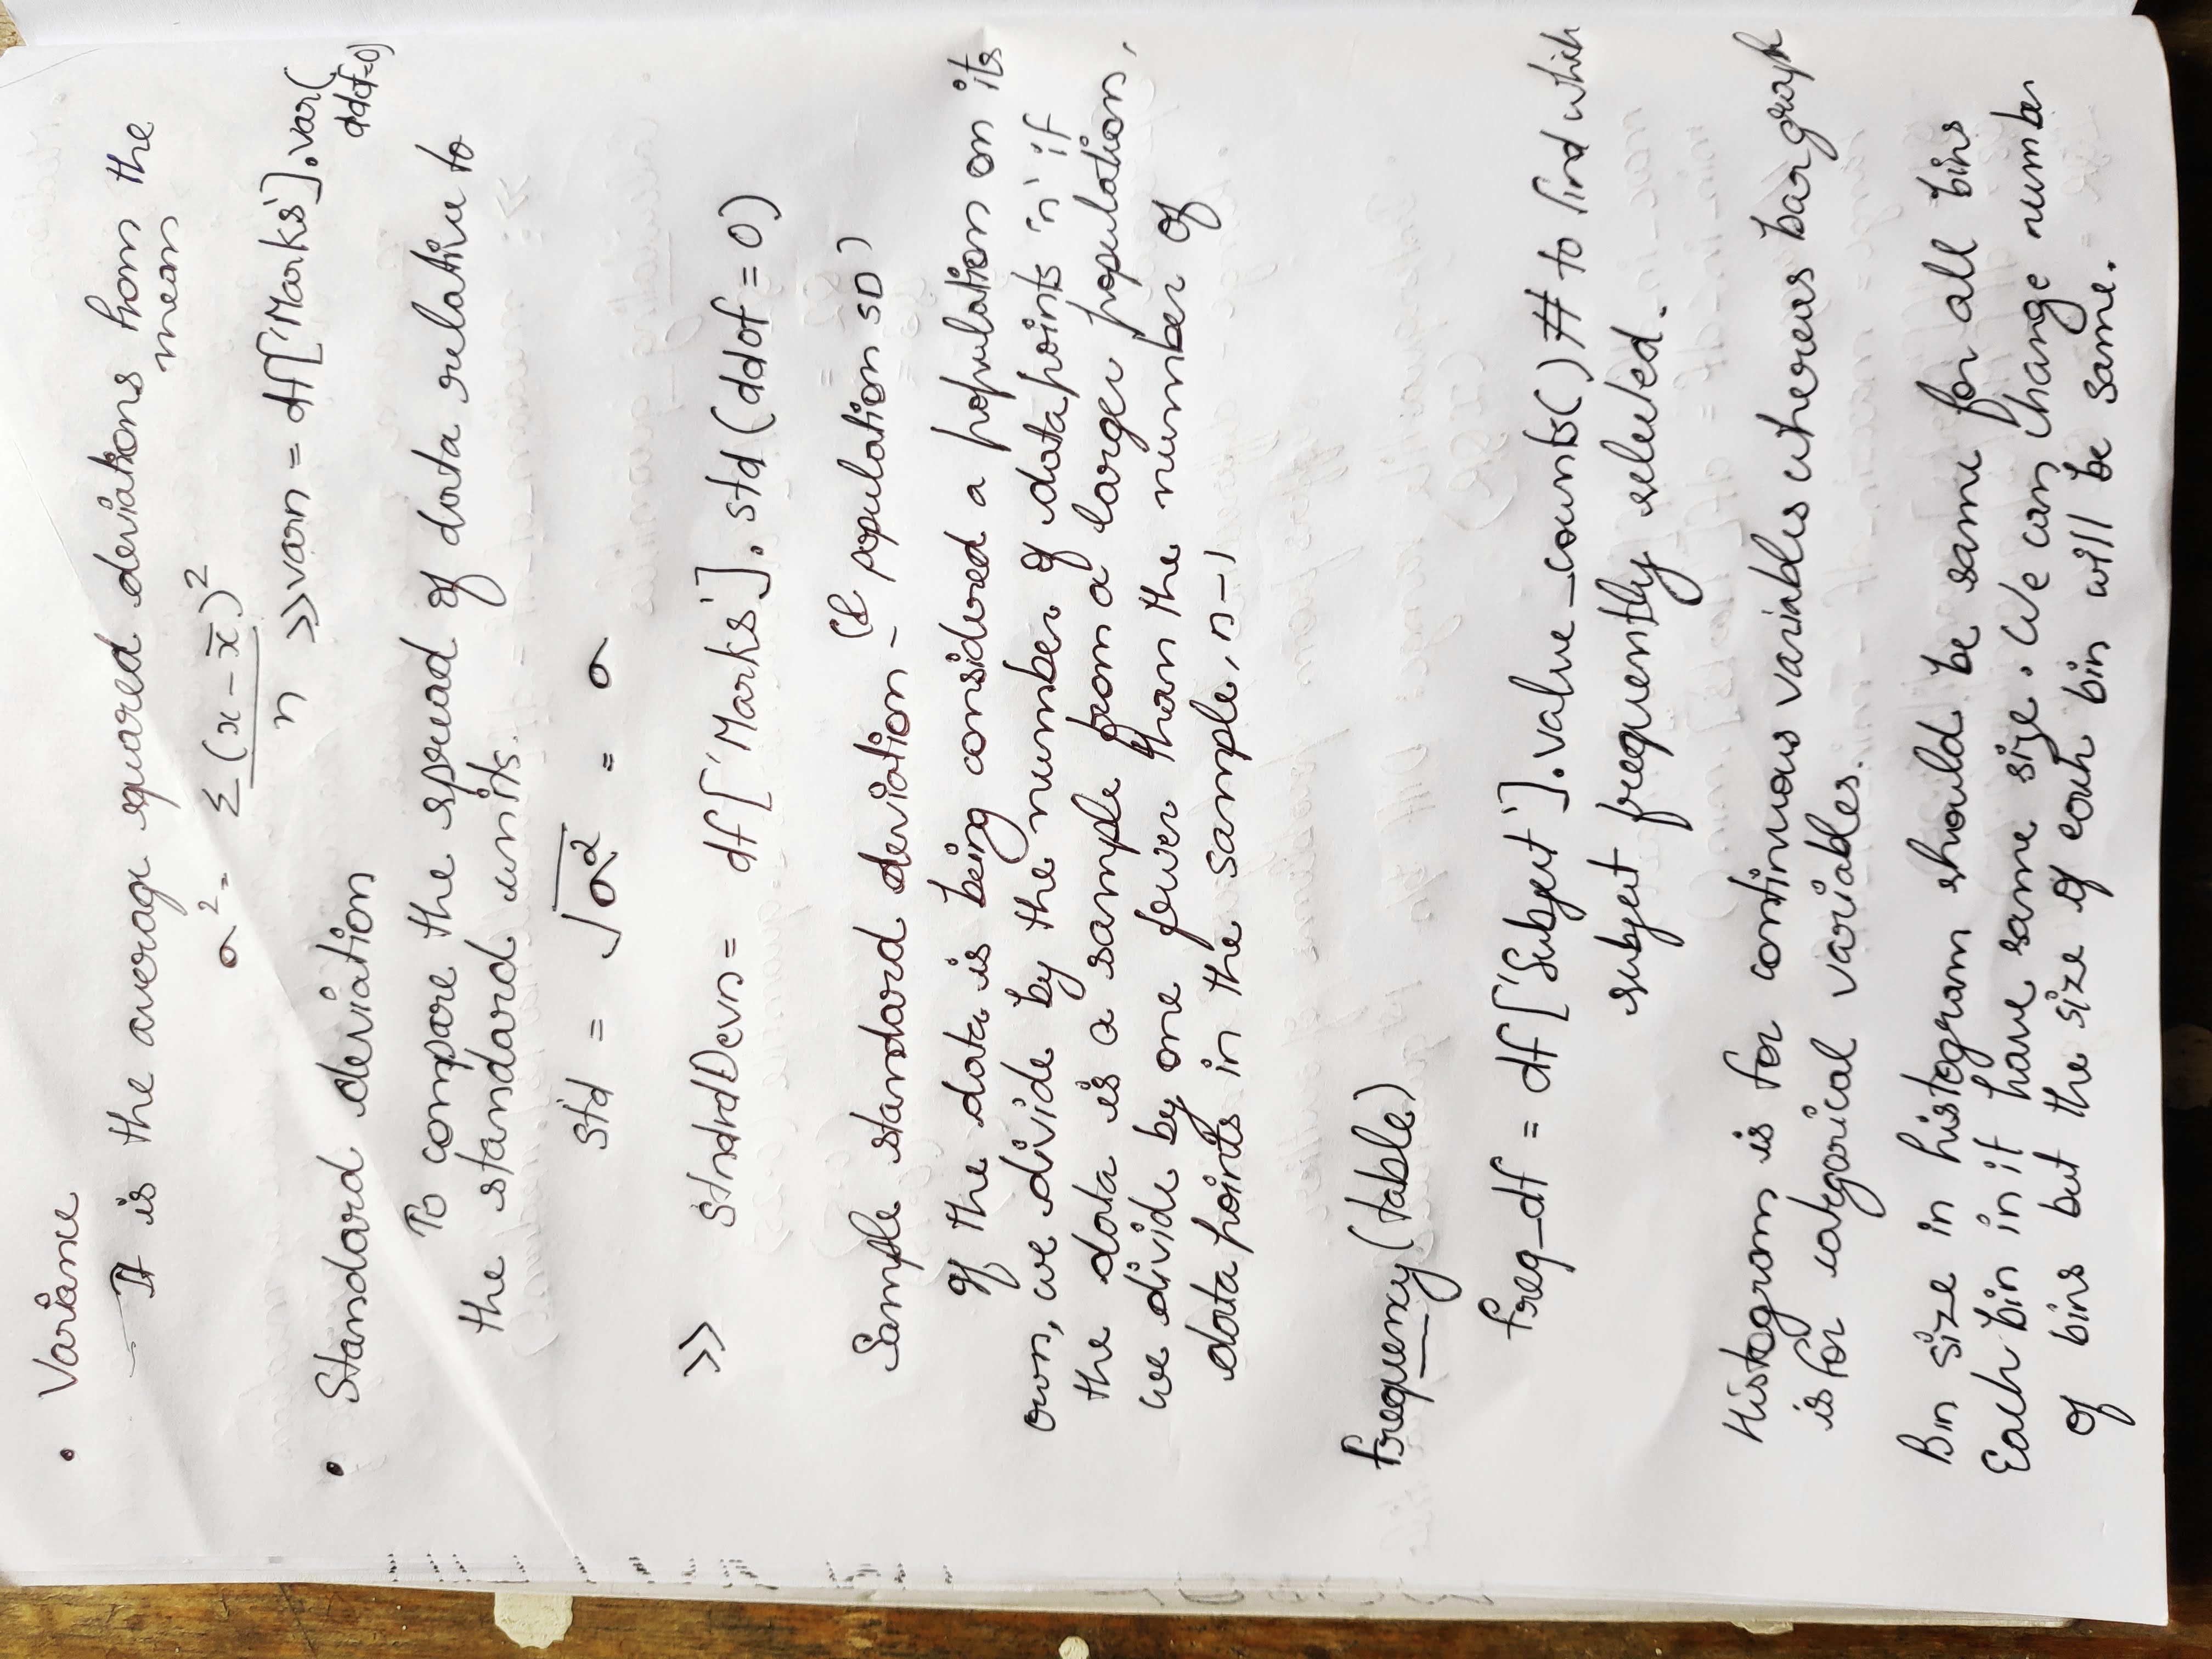 • Variance
It is the average squared deviations from the
mean
σ² = Σ(x - x̄)²
n
>> varn = df['Marks'].var(
ddof=0)
• Standard deviation
To compare the spread of data relative to
the standard units.
std = √σ² = σ
>> stndrdDevn = df['Marks'].std(ddof=0)
Sample standard deviation - (& population SD)
If the data is being considered a population on its
own, we divide by the number of datapoints 'n' if
the data is a sample from a larger population,
we divide by one fewer than the number of
data points in the sample, n-1
Frequency (table)
freq_df = df['Subject'].value_counts() # to find which
subject frequently selected.
Histogram is for continuous variables whereas bar graph
is for categorical variables.
Bin size in histogram should be same for all bins
Each bin in it have same size. We can change number
of bins but the size of each bin will be same.